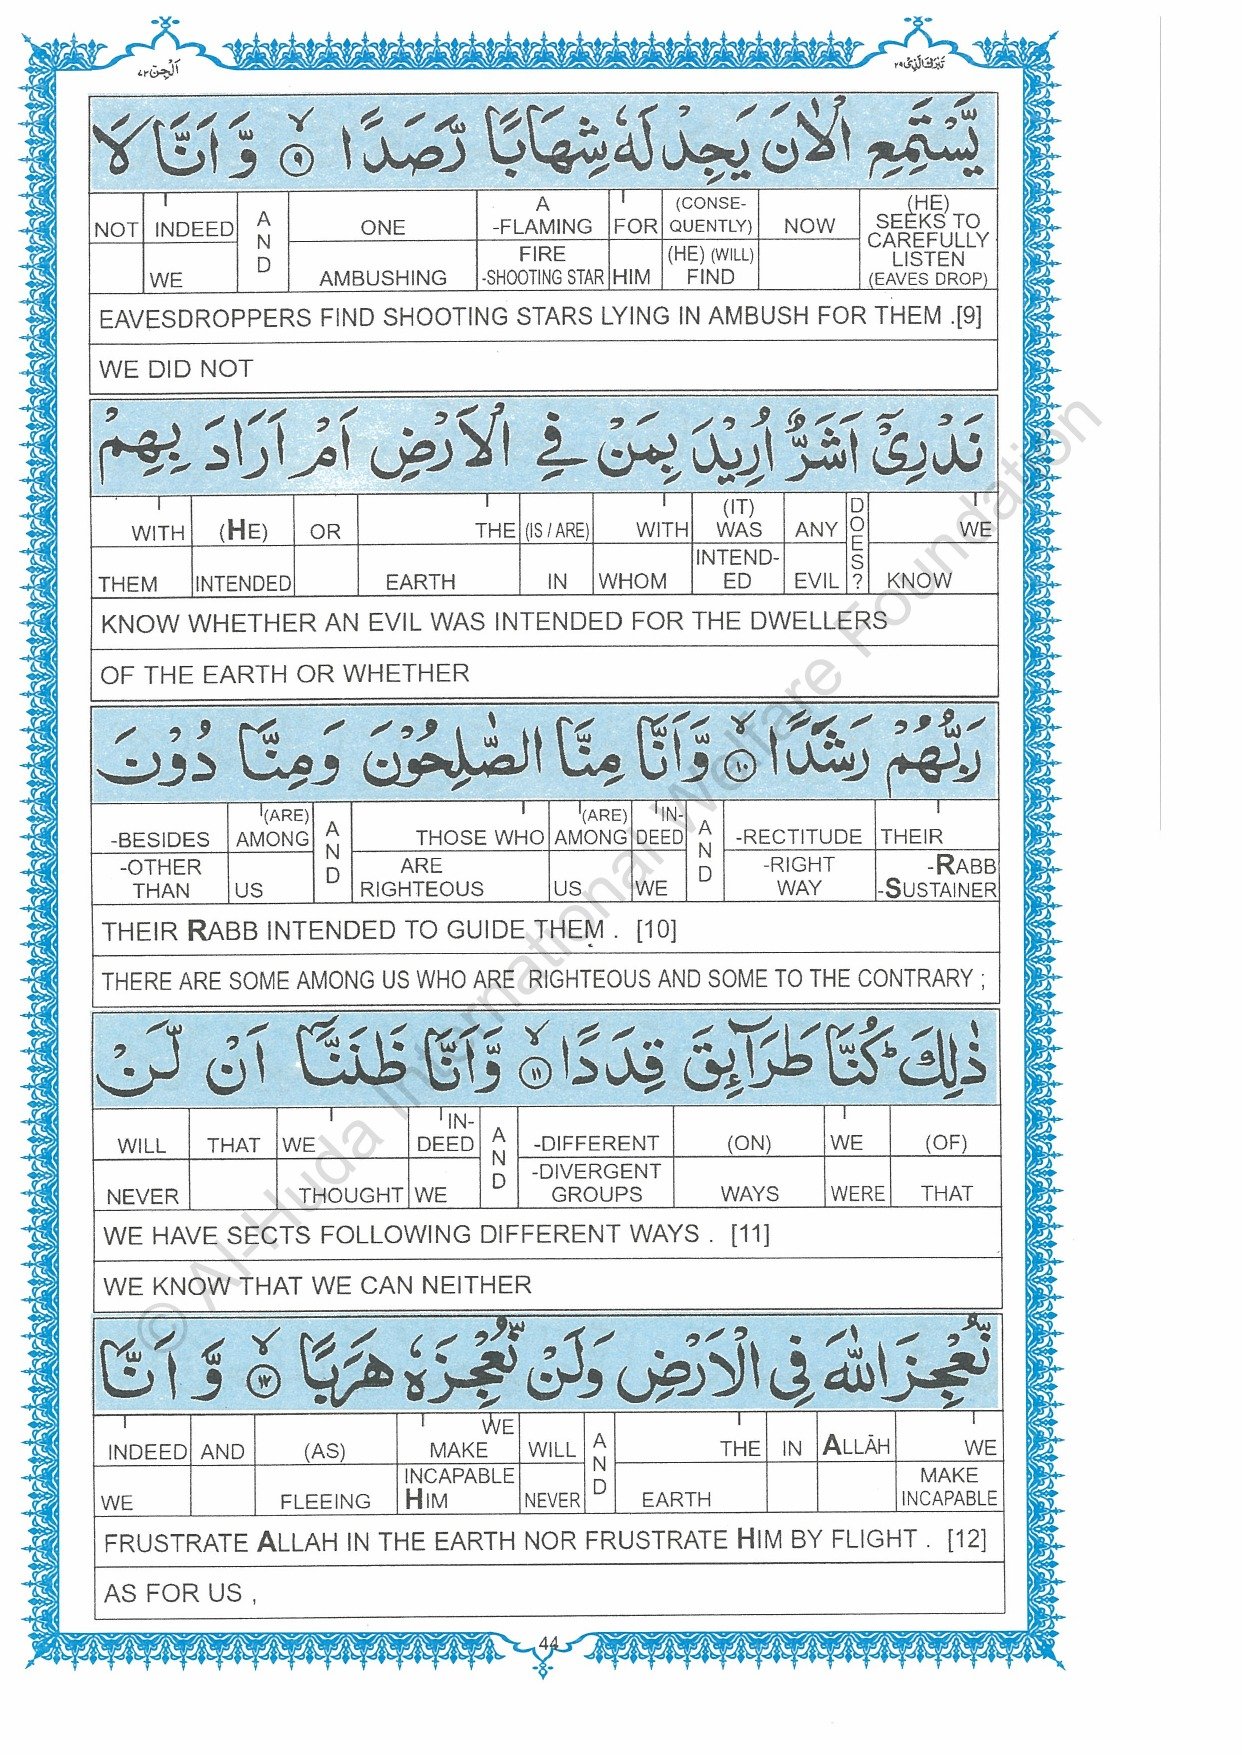 اَلْجِنّ ٧٢
تَبٰرَكَ الَّذِیْ ٢٩
یَّسْتَمِعِ الْاٰنَ یَجِدْ لَهٗ شِهَابًا رَّصَدًا ۙ﴿۹﴾ وَّ اَنَّا لَا
NOT INDEED AND ONE A -FLAMING FOR (CONSE-QUENTLY) NOW (HE) SEEKS TO CAREFULLY LISTEN (EAVES DROP)
WE AMBUSHING FIRE -SHOOTING STAR HIM (HE) (WILL) FIND
EAVESDROPPERS FIND SHOOTING STARS LYING IN AMBUSH FOR THEM .[9]
WE DID NOT
نَدْرِیْۤ اَشَرٌّ اُرِیْدَ بِمَنْ فِی الْاَرْضِ اَمْ اَرَادَ بِهِمْ
WITH (HE) OR THE (IS / ARE) WITH (IT) WAS ANY DOES? WE
THEM INTENDED EARTH IN WHOM INTEND-ED EVIL KNOW
KNOW WHETHER AN EVIL WAS INTENDED FOR THE DWELLERS
OF THE EARTH OR WHETHER
رَبُّهُمْ رَشَدًا ۙ﴿۱۰﴾ وَّاَنَّا مِنَّا الصّٰلِحُوْنَ وَمِنَّا دُوْنَ
-BESIDES (ARE) AMONG AND THOSE WHO (ARE) AMONG IN-DEED AND -RECTITUDE THEIR
-OTHER THAN US ARE RIGHTEOUS US WE -RIGHT WAY -RABB -SUSTAINER
THEIR RABB INTENDED TO GUIDE THEM . [10]
THERE ARE SOME AMONG US WHO ARE RIGHTEOUS AND SOME TO THE CONTRARY ;
ذٰلِكَ ؕ كُنَّا طَرَآئِقَ قِدَدًا ۙ﴿۱۱﴾ وَّاَنَّا ظَنَنَّاۤ اَنْ لَّنْ
WILL THAT WE IN-DEED AND -DIFFERENT (ON) WE (OF)
NEVER THOUGHT WE -DIVERGENT GROUPS WAYS WERE THAT
WE HAVE SECTS FOLLOWING DIFFERENT WAYS . [11]
WE KNOW THAT WE CAN NEITHER
نُّعْجِزَ اللّٰهَ فِی الْاَرْضِ وَلَنْ نُّعْجِزَهٗ هَرَبًا ۙ﴿۱۲﴾ وَّ اَنَّا
INDEED AND (AS) WE MAKE WILL AND THE IN ALLĀH WE
WE FLEEING INCAPABLE HIM NEVER EARTH MAKE INCAPABLE
FRUSTRATE ALLAH IN THE EARTH NOR FRUSTRATE HIM BY FLIGHT . [12]
AS FOR US ,
44
© Al-Huda International Welfare Foundation